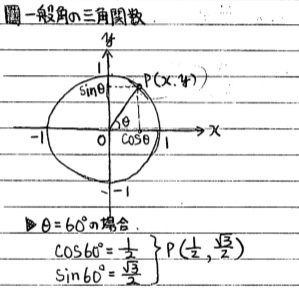 図 一般角の三角関数.
y
1
sinθ
P(x.y)
θ
-1
0
cosθ
1
x
-1
▶θ=60°の場合.
cos60°=1/2
sin60°=√3/2
} P(1/2, √3/2)